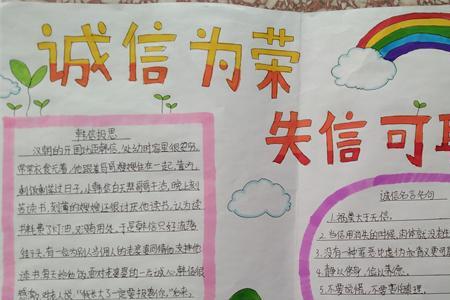 诚信为荣
失信可耻
韩信报恩
汉朝的开国功臣韩信,幼时家里很贫穷,
常常衣食无着,他跟着哥哥嫂嫂住在一起,靠吃
剩饭剩菜过日子,小韩信白天帮哥哥干活,晚上刻
苦读书,刻薄的嫂嫂还很讨厌他读书,认为读
书耗费了灯油,又没有用处,于是韩信只好流落
街头,有一位为别人当佣人的老婆婆同情他,支持他
读书,还每天给他饭,面对老婆婆的一片诚心,韩信很
感动,对老人说:"我长大了一定要报答你。"
诚信名言名句
1.祸莫大于无信。
2.当信用消失的时候,肉体就没有生
3.没有一种罪恶比虚伪和背义更可
4.静以修身,俭以养德。
5.不宝金银,不害道理。